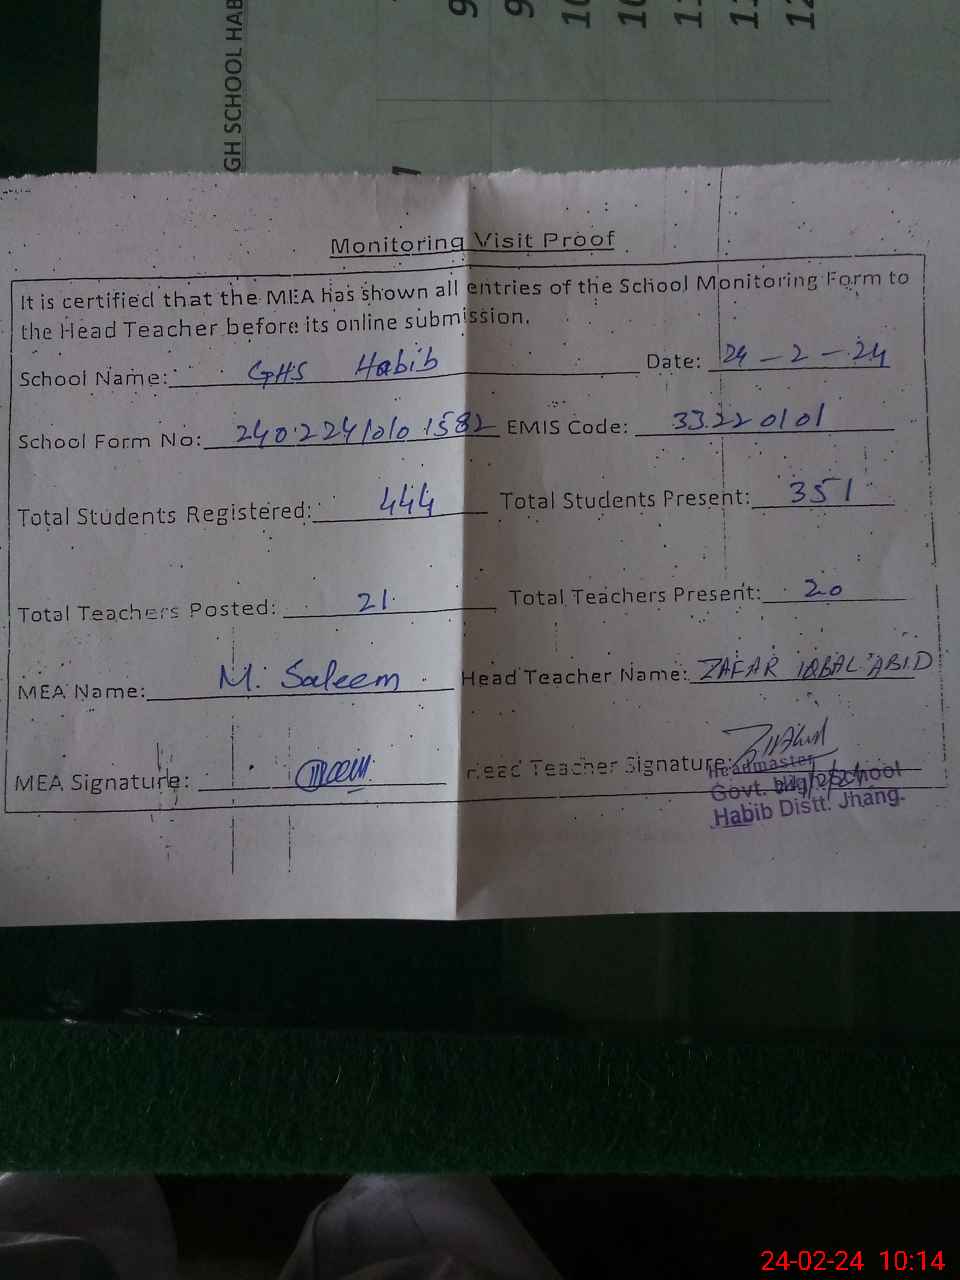 GH SCHOOL HAB
9
9
10
10
11
11
12
1
Monitoring Visit Proof
It is certified that the MEA has shown all entries of the School Monitoring Form to
the Head Teacher before its online submission.
School Name: GHS Habib Date: 24-2-24
School Form No: 24022410101582 EMIS Code: 33220101
Total Students Registered: 444 Total Students Present: 351
Total Teachers Posted: 21 Total Teachers Present: 20
MEA Name: M. Saleem Head Teacher Name: ZAFAR IQBAL ABID
MEA Signature: Head Teacher Signature:
Headmaster
Govt. High School
Habib Distt. Jhang.
24-02-24 10:14